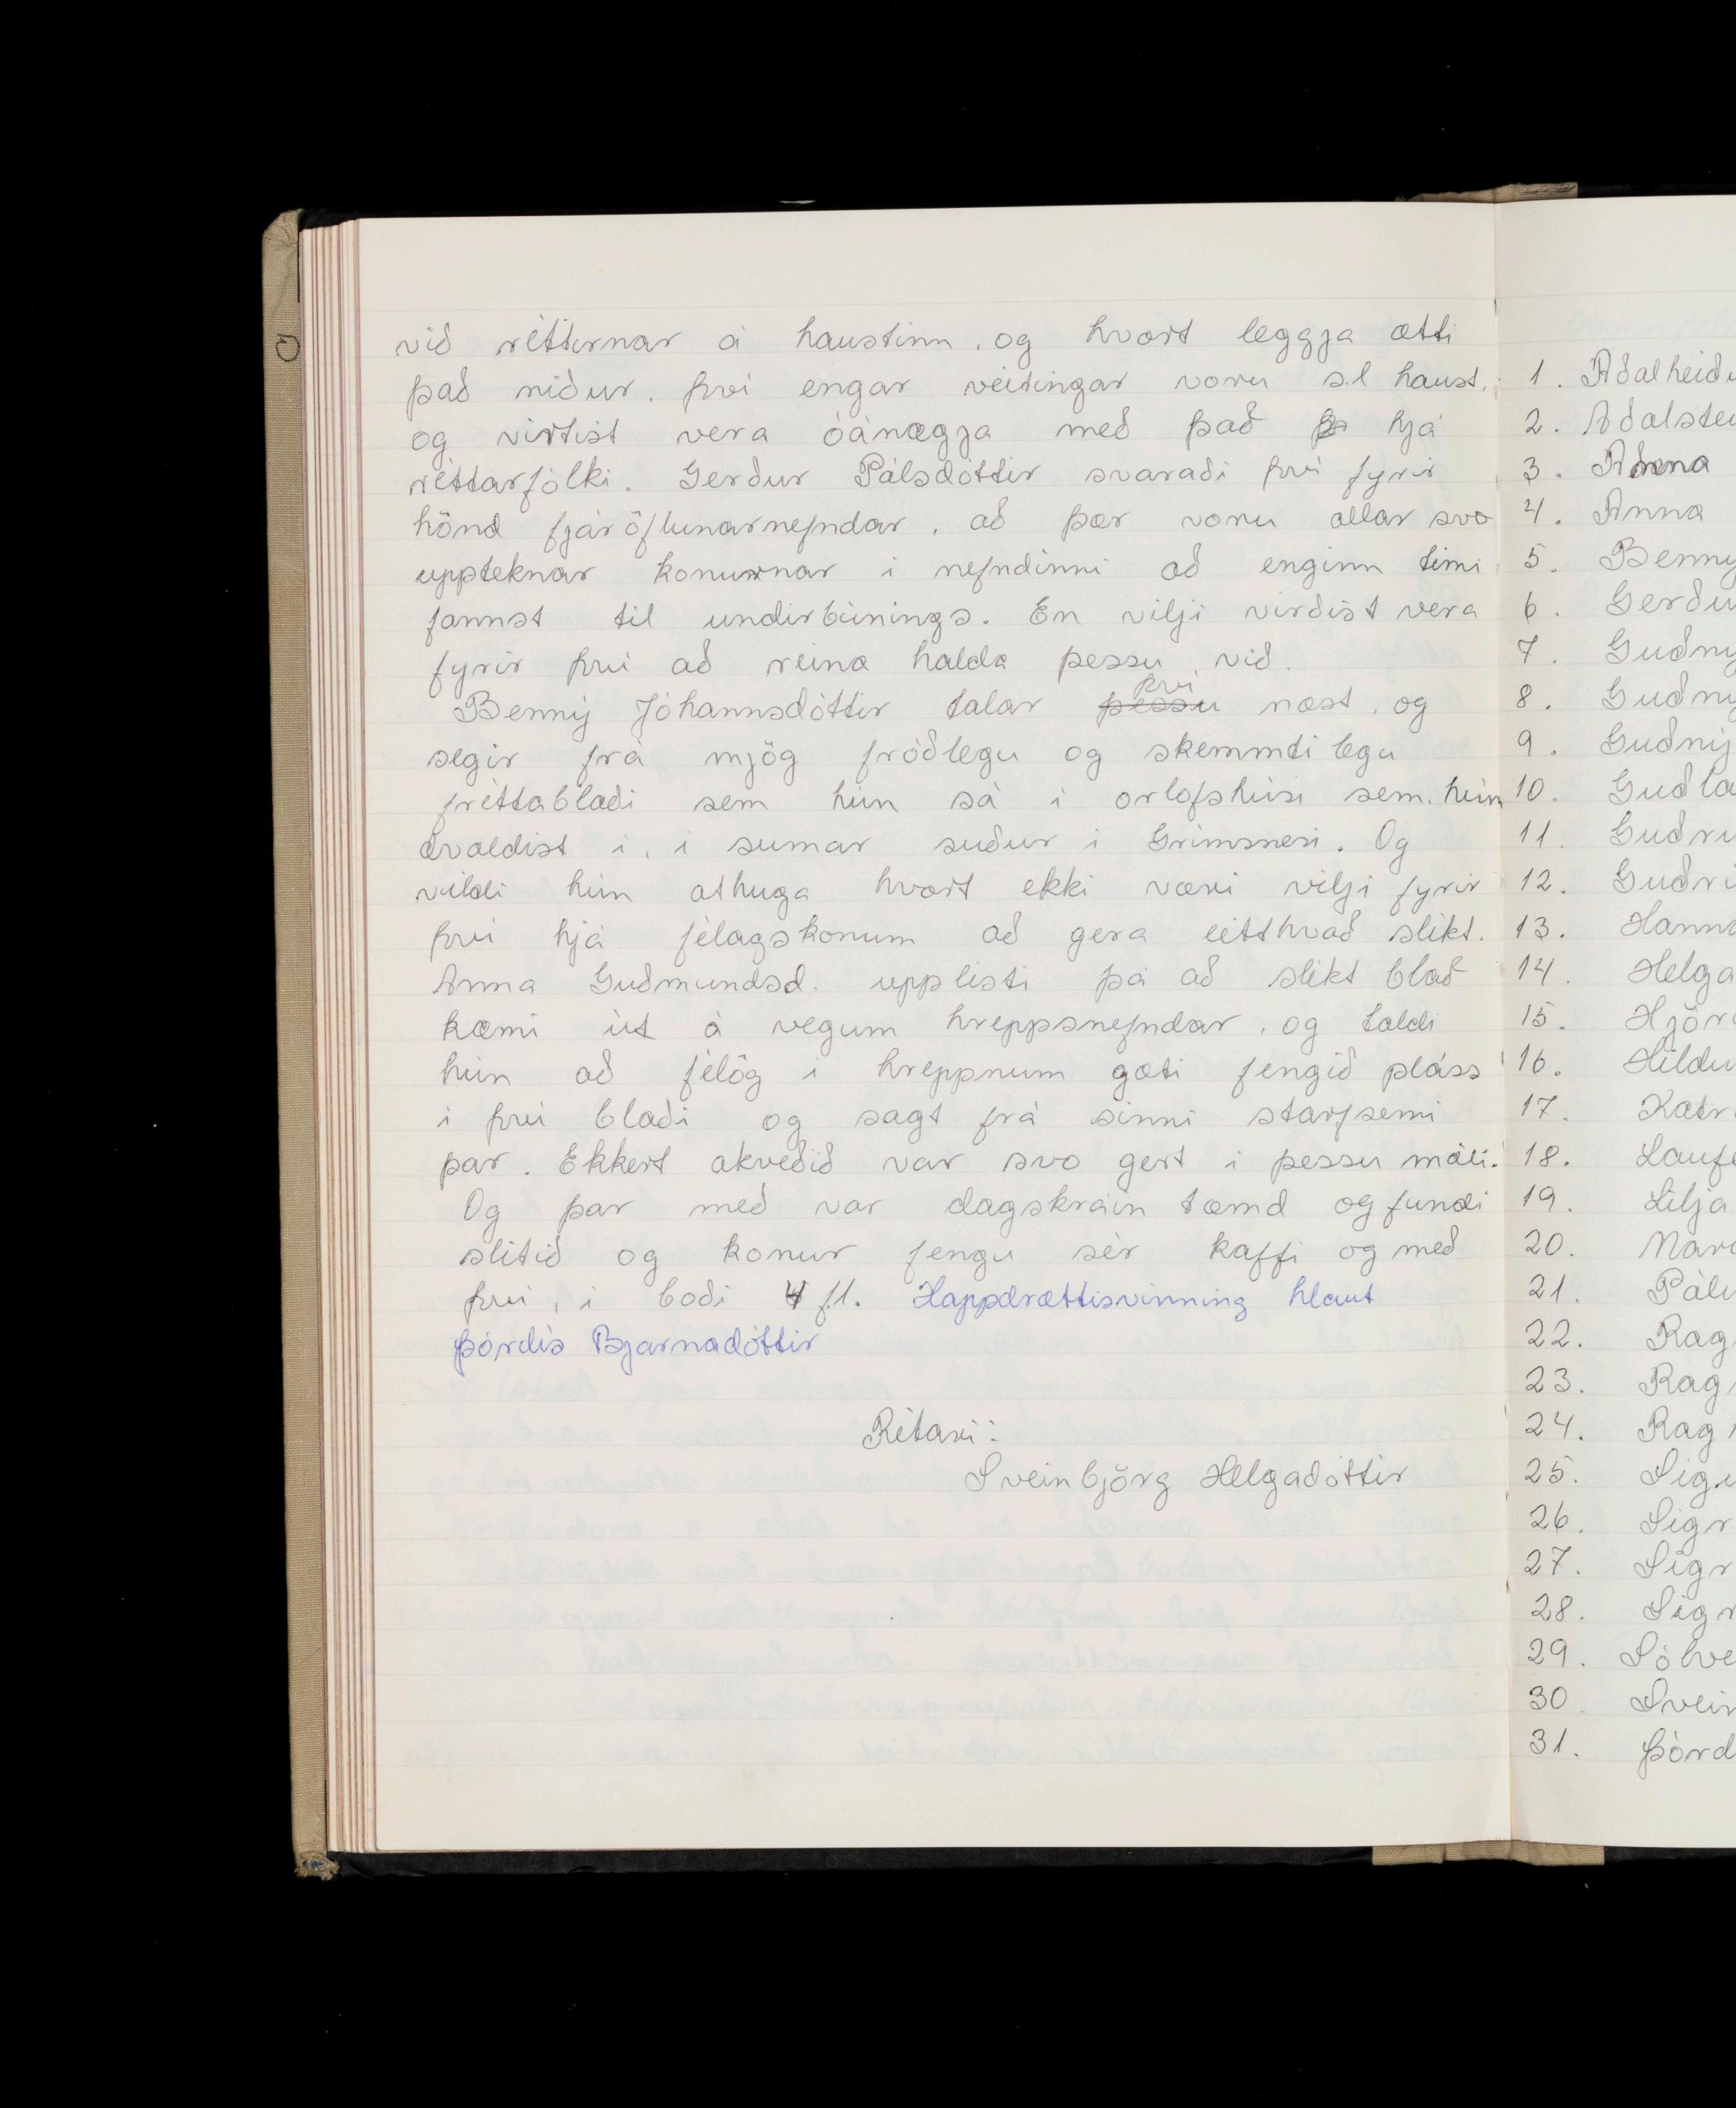 við réttirnar á haustinn, og hvort leggja ætti
það niður, því engar veitingar voru s.l haust,
og virtist vera óánægja með það hjá
réttarfólki. Gerður Pálsdóttir svaraði því fyrir
hönd fjáröflunarnefndar, að þær voru allar svo
uppteknar konurnar í nefndinni að enginn tími
fannst til undirbúnings. En vilji virðist vera
fyrir því að reina halda þessu við.
Benný Jóhannsdóttir talar þessu því næst, og
segir frá mjög fróðlegu og skemmtilegu
fréttablaði sem hún sá í orlofshúsi sem hún
dvaldist í, í sumar suður í Grímsnesi. Og
vildi hún athuga hvort ekki væri vilji fyrir
því hjá félagskonum að gera eitthvað slíkt.
Anna Guðmundsd. upplisti þá að slíkt blað
kæmi út á vegum hreppsnefndar, og taldi
hún að félög í hreppnum gæti fengið pláss
í því blaði og sagt frá sinni starfsemi
þar. Ekkert akveðið var svo gert í þessu máli.
Og þar með var dagskráin tæmd og fundi
slitið og konur fengu sér kaffi og með
því, í boði 4 fl. Happdrættisvinning hlaut
Þórdís Bjarnadóttir
Ritari:
Sveinbjörg Helgadóttir
1. Aðalheiðu
2. Aðalstei
3. Anna
4. Anna
5. Benný
6. Gerðu
7. Guðný
8. Guðný
9. Guðný
10. Guðla
11. Guðru
12. Guðrú
13. Hanna
14. Helga
15. Hjörd
16. Hildu
17. Katr
18. Laufe
19. Lilja
20. Mar
21. Pál
22. Rag
23. Rag
24. Rag
25. Sigu
26. Sigr
27. Sigr
28. Sigr
29. Sólve
30. Svein
31. Þórd